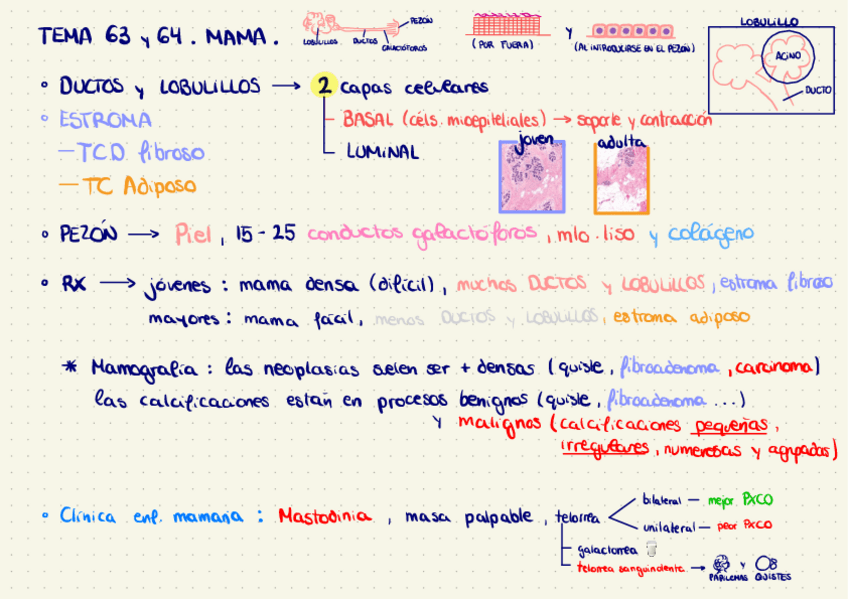 TEMA 63 y 64. MAMA.
LOBULILLOS DUCTOS GALACTÓFOROS PEZÓN
(POR FUERA) Y (AL INTRODUCIRSE EN EL PEZÓN)
LOBULILLO
ACINO
DUCTO
• DUCTOS y LOBULILLOS → 2 capas celulares
BASAL (céls. mioepiteliales) → soporte y contracción
LUMINAL
• ESTROMA
- TCD fibroso
- TC Adiposo
joven adulta
• PEZÓN → Piel, 15-25 conductos galactóforos, mlo. liso y colágeno
• RX → jóvenes: mama densa (difícil), muchos DUCTOS y LOBULILLOS, estroma fibroso
mayores: mama fácil, menos DUCTOS y LOBULILLOS, estroma adiposo
* Mamografía: las neoplasias suelen ser + densas (quiste, fibroadenoma, carcinoma)
las calcificaciones están en procesos benignos (quiste, fibroadenoma ...)
y malignos (calcificaciones pequeñas,
irregulares, numerosas y agrupadas)
• Clínica enf. mamaria: Mastodinia, masa palpable, telorrea
bilateral - mejor PXCO
unilateral - peor PXCO
galactorrea
telorrea sanguinolenta → y
PAPILOMAS QUISTES